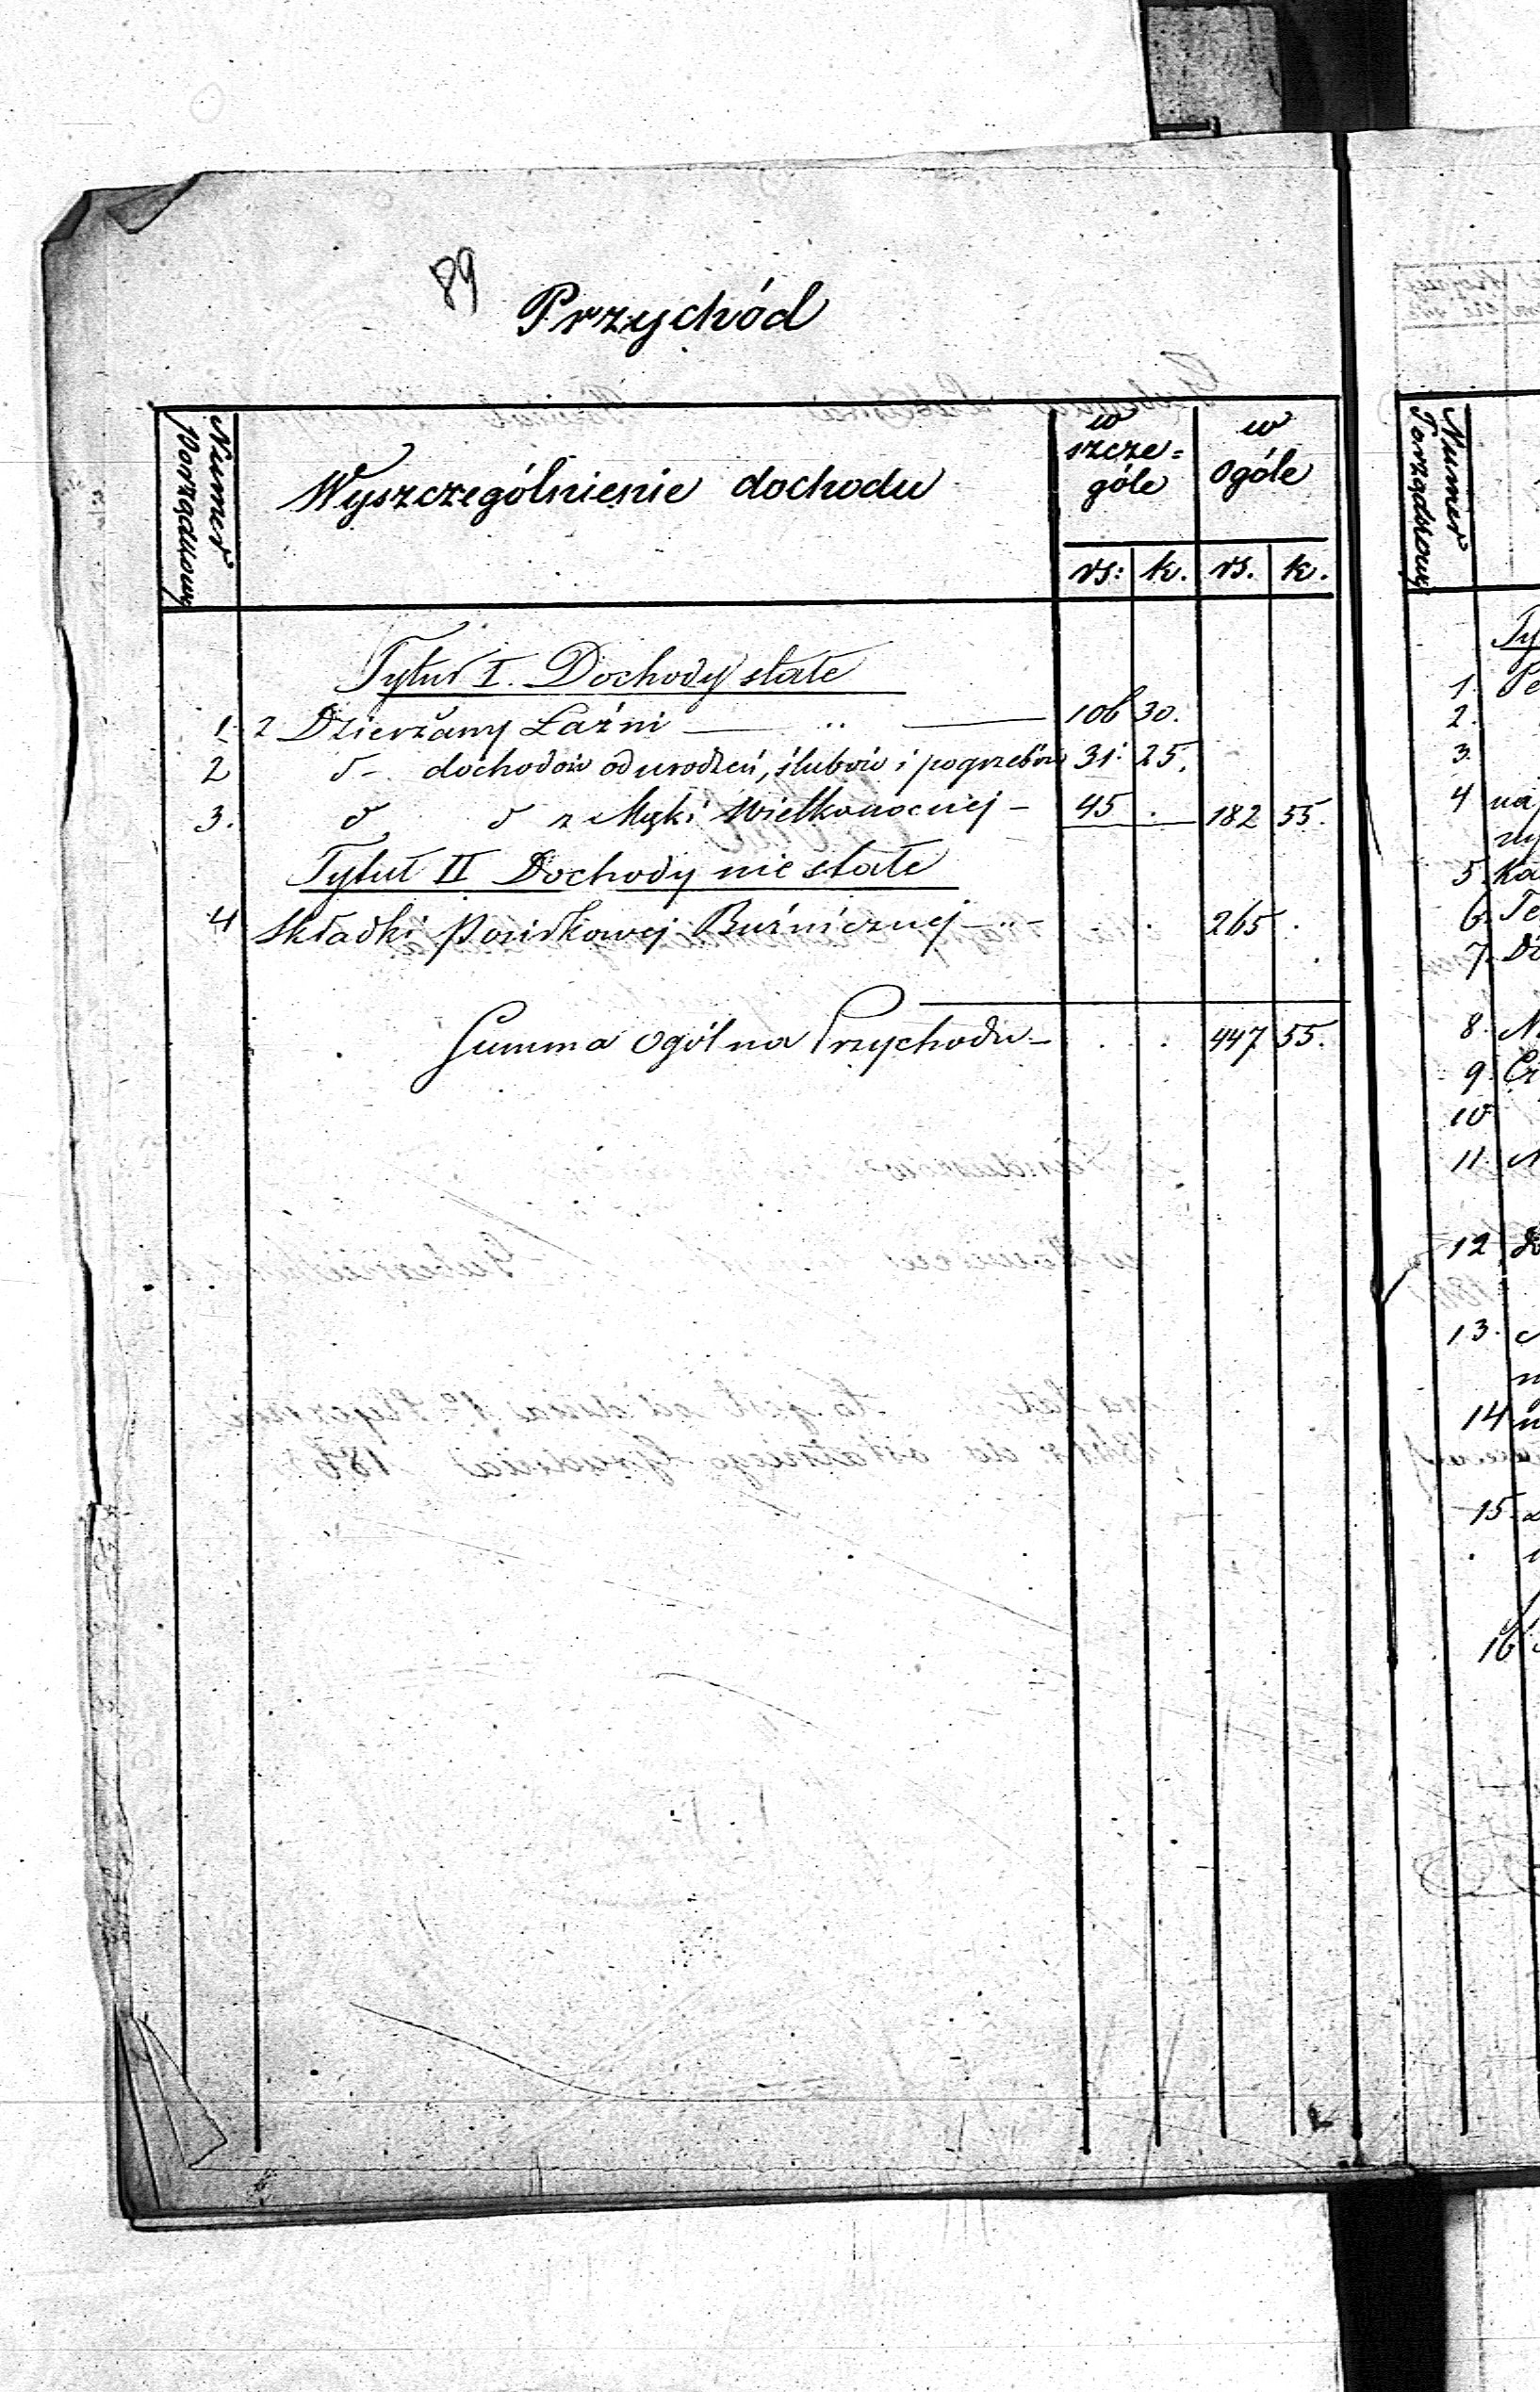 89
Przychód
Numer Porządkowy
Wyszczególnienie dochodu
w szcze=góle
w ogóle
rs: k. rs. k.
Tytuł I. Dochody stałe
1. z Dzierżawy Łaźni — „ — 106 30.
2 d - dochodów od urodzeń, ślubów i pogrzebów 31. 25.
3. d d z Mąki Wielkonocnej - 45 . 182 55.
Tytuł II Dochody nie stałe
4 Składki Bużnicznej - „ - . . 265 .
Summa ogólna Przychodu - . . 447 55.
Numer Porządkowy
1.
2.
3.
4
5.
6.
7.
8.
9.
10
11.
12
13.
14
15
16